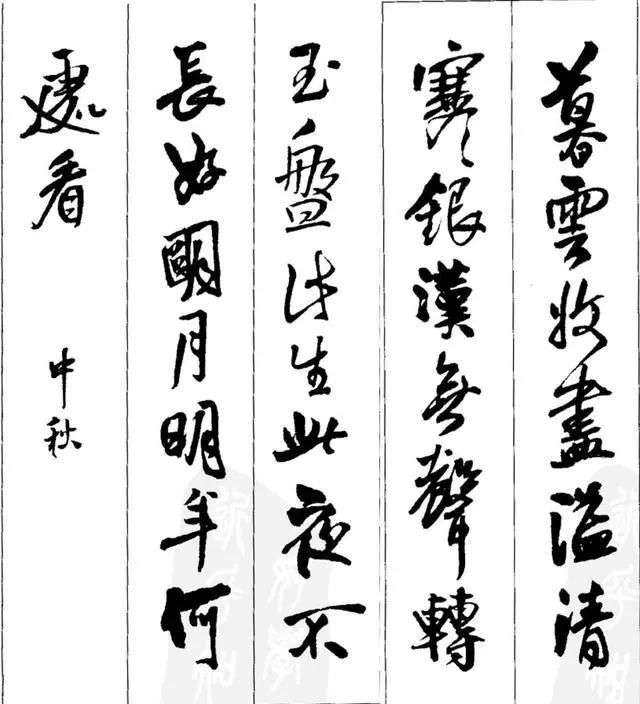 暮雲收盡溢清
寒銀漢無聲轉
玉盤此生此夜不
長好明月明年何
處看
中秋